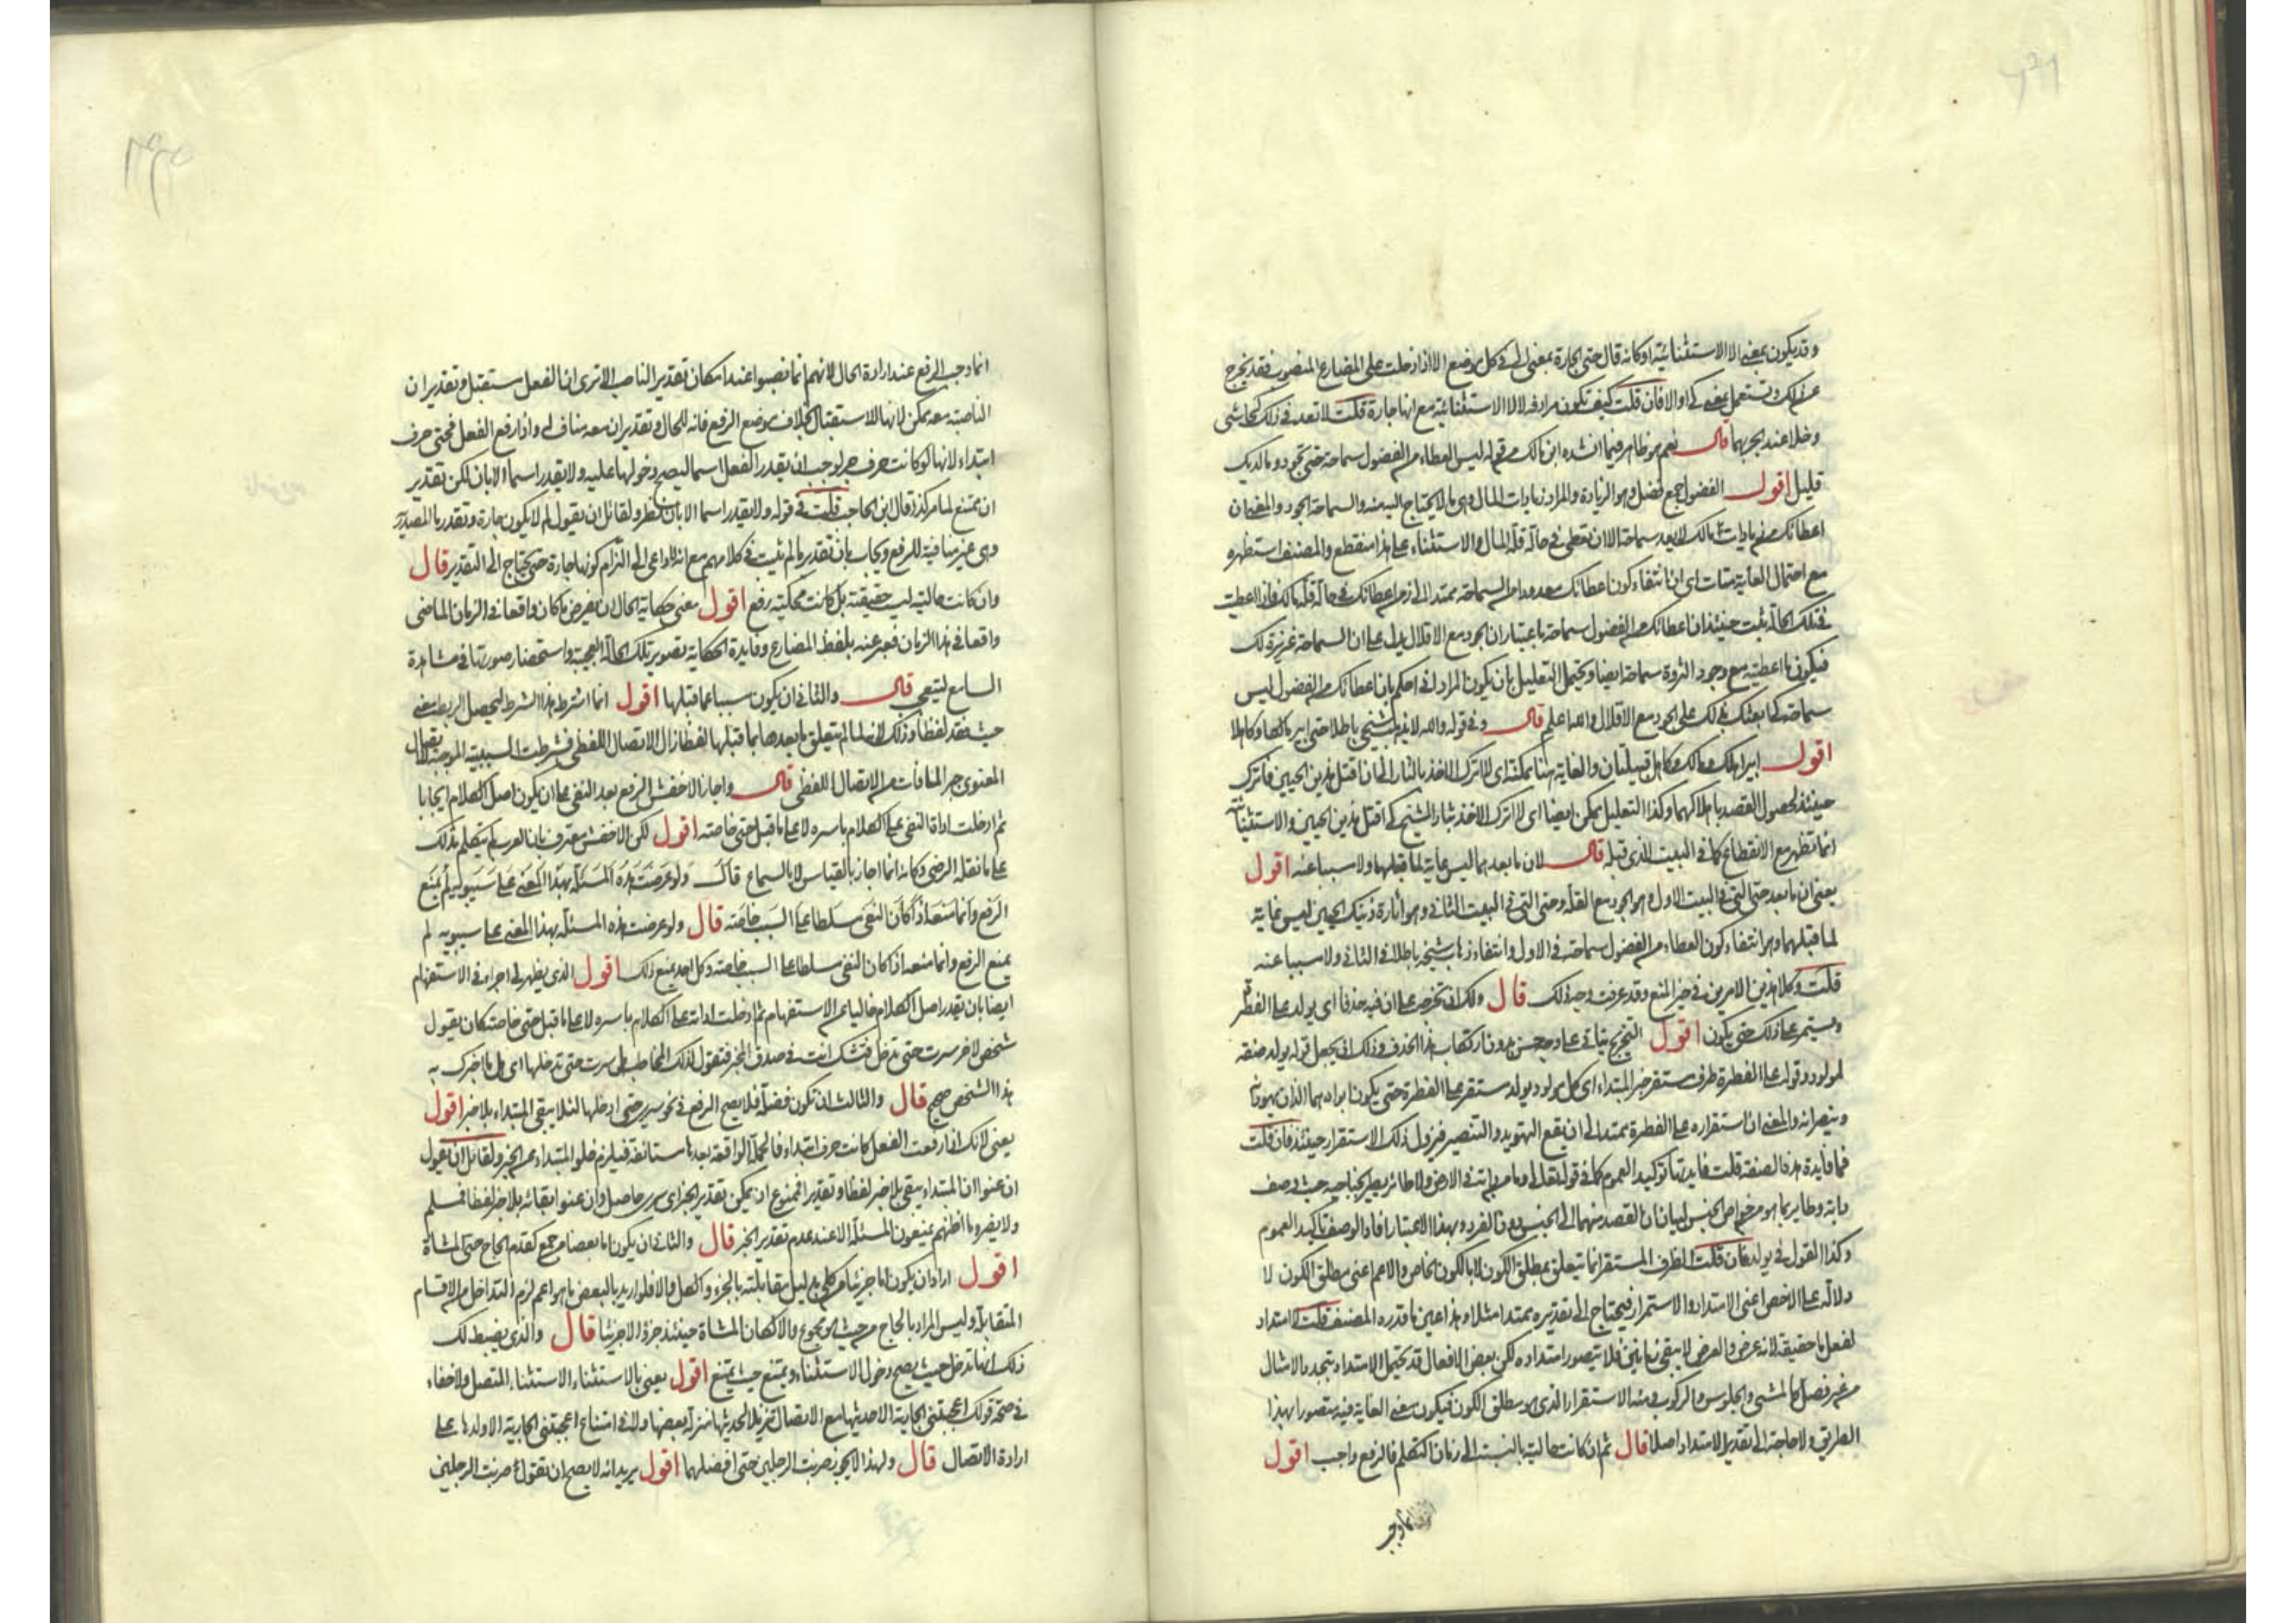 وقد يكون بمعنى الا الاستثنائية او كانه قال حتى الجارة بمعنى الى في كل موضع الا اذا دخلت على المضارع المنصوب فقد يخرج
عن ذلك وتستعمل بمعنى كى او الا فان قلت كيف تكون مرادفة لالا الاستثنائية مع انها جارة قلت لا تعد في ذلك كحاشى
وخلا عند الجر بهما قال نعم هو ظاهر فيما انشده ابن مالك من قوله ليس العطاء من الفضول سماحة حتى تجود وما لديك
قليل اقول الفضول جمع فضل وهو الزيادة والمراد زيادات المال وهى ما لا يحتاج اليه منه والسماحة الجود والمعنى ان
اعطائك من زيادات مالك لا يعد سماحة الا ان تعطى في حالة قلة المال والاستثناء على هذا منقطع والمصنف استظهره
مع احتمال الغاية هنا اى ان انتفاء كون اعطائك معدودا من السماحة ممتد الى زمن اعطائك في حالة قلة مالك فاذا اعطيت
في تلك الحالة ثبت حينئذ ان اعطائك من الفضول سماحة باعتبار ان الجود مع الاقلال يدل على ان السماحة غريزة لك
فيكون ما اعطيته مع وجود الثروة سماحة ايضا ويحتمل التعليل بان يكون المراد انى احكم بان اعطائك من الفضول ليس
سماحة كى ابعثك بذلك على الجود مع الاقلال والله اعلم قال وفي قوله والله لا يذهب شيخى باطلا حتى ابير مالكا وكاهلا
اقول ابير اهلك ومالك وكاهل قبيلتان والغاية هنا ممكنة اى لا اترك الاخذ بالثار الى ان اقتل هذين الحيين فاترك
حينئذ لحصول القصد باهلاكهما وكذا التعليل يمكن ايضا اى لا اترك الاخذ بثار الشيخ كى اقتل هذين الحيين والاستثنائية
انما تظهر مع الانقطاع كما في البيت الذى قبله قال لان ما بعدهما ليس غاية لما قبلهما ولا سببا عنه اقول
يعنى ان ما بعد حتى التى في البيت الاول وهو الجود مع القلة وحتى التى في البيت الثانى وهو ابارة ذينك الحيين ليس غاية
لما قبلهما وهو انتفاء كون العطاء من الفضول سماحة في الاول وانتفاء ذهاب شيخه باطلا في الثانى ولا سببا عنه
قلت وكلا هذين الامرين في حيز المنع وقد عرفت وجه ذلك قال ولك ان تخرجه على ان فيه حذفا اى يولد على الفطرة
ويستمر على ذلك حتى يكون اقول التخريج يتاتى على وجه حسن بدون ارتكاب هذا الحذف وذلك ان يجعل قوله يولد صفة
لمولود وقوله على الفطرة ظرف مستقر خبر المبتداء اى كل مولود يولد مستقر على الفطرة حتى يكون ابواه هما اللذان يهودانه
وينصرانه والمعنى ان استقراره على الفطرة يمتد الى ان يقع التهويد والتنصير فيزول ذلك الاستقرار حينئذ فان قلت
فما فايدة هذه الصفة قلت فايدتها توكيد العموم كما في قوله تعالى وما من دابة في الارض ولا طائر يطير بجناحيه حيث وصف
دابة وطاير بما هو من خواص الجنس لبيان ان القصد منهما الى الجنس دون الفرد وبهذا الاعتبار افاد الوصف تاكيد العموم
وكذا القول في يولد فان قلت الظرف المستقر انما يتعلق بمطلق الكون لا بالكون الخاص والاعم اعنى مطلق الكون لا
دلالة له على الاخص اعنى الامتداد والاستمرار فيحتاج الى تقديره ممتدا مثلا وهذا عين ما قدره المصنف قلت لا امتداد
لفعل ما حقيقة لانه عرض والعرض لا يبقى زمانين فلا يتصور امتداده لكن بعض الافعال قد يحتمل الامتداد بتجدد الامثال
من غير فصل كالمشى والجلوس والركوب ومنه الاستقرار الذى هو مطلق الكون فيكون معنى الغاية فيه متصورا بهذا
الطريق ولا حاجة الى تقدير الامتداد اصلا قال ثم ان كانت حاليته بالنسبة الى زمان التكلم فالرفع واجب اقول
انما وجب
انما وجب الرفع عند ارادة الحال لانهم انما نصبوا عند امكان تقدير الناصب الا ترى ان الفعل مستقبل وتقدير ان
الناصبة معه ممكن لانها للاستقبال بخلاف موضع الرفع فانه للحال وتقدير ان معه مناف له واذا رفع الفعل فحتى حرف
ابتداء لانها لو كانت حرف جر لوجب ان يقدر الفعل اسما ليصح دخولها عليه ولا يقدر اسما الا بان لكن تقدير
ان ممتنع لما مر كذا قال ابن الحاجب قلت في قوله ولا يقدر اسما الا بان نظر ولقائل ان يقول لم لا يكون جارة وتقدر ما المصدرية
وهى غير منافية للرفع ويجاب بان تقدير ما لم يثبت في كلامهم مع انه لا داعى الى التزام كونها جارة حتى يحتاج الى التقدير قال
وان كانت حاليته ليست حقيقة بل كانت محكية رفع اقول معنى حكاية الحال ان يفرض ما كان واقعا في الزمان الماضى
واقعا في هذا الزمان فيعبر عنه بلفظ المضارع وفايدة الحكاية تصوير تلك الحالة العجيبة واستحضار صورتها في مشاهدة
السامع ليتعجب قال والثانى ان يكون سببا عما قبلها اقول انما اشترط هذا الشرط ليحصل الربط معنى
حيث فقد لفظا وذلك لانه لما لم يتعلق ما بعدها بما قبلها لفظا زال الاتصال اللفظى فشرطت السببية الموجبة للاتصال
المعنوى جبرا لما فات من الاتصال اللفظى قال واجاز الاخفش الرفع بعد النفى على ان يكون اصل الكلام ايجابا
ثم ادخلت اداة النفى على الكلام باسره لا على ما قبل حتى خاصة اقول لكن الاخفش معترف بان العرب لم يتكلم بذلك
على ما نقله الرضى وكانه انما اجازه بالقياس لا بالسماع قال ولو عرضت هذه المسئلة بهذا المعنى على سيبويه لم يمنع
الرفع وانما منعه اذا كان النفى مسلطا على السبب خاصة قال ولو عرضت هذه المسئلة بهذا المعنى على سيبويه لم
يمنع الرفع وانما منعه اذا كان النفى مسلطا على السبب خاصة وكل احد يمنع ذلك اقول الذى يظهر لى اجراءه في الاستفهام
ايضا بان يقدر اصل الكلام خاليا عن الاستفهام ثم ادخلت اداته على الكلام باسره لا على ما قبل حتى خاصة كان يقول
شخص لاخر سرت حتى تدخل فتشك انت في صدق الخبر فتقول لذلك المخاطب هل سرت حتى تدخلها اى هل ما اخبرك به
هذا الشخص صحيح قال والثالث ان تكون فضلة فلا يصح الرفع في نحو سيرى حتى ادخلها لئلا يبقى المبتداء بلا خبر اقول
يعنى لانك اذا رفعت الفعل كانت حرف ابتداء فالجملة الواقعة بعدها مستانفة فيلزم خلو المبتداء عن الخبر ولقائل ان يقول
ان عنوا ان المبتداء يبقى بلا خبر لفظا وتقديرا فممنوع اذ يمكن تقدير الخبر اى سيرى حاصل وان عنوا ابقائه بلا خبر لفظا فمسلم
ولا يضره ما اظنهم يمنعون المسئلة الا عند عدم تقدير الخبر قال والثانى ان يكون اما بعضا من جمع كقدم الحاج حتى المشاة
اقول اراد ان يكون اما جزئيا من كلى بدليل مقابلته بالجزء والكل والا فلو اريد بالبعض ما هو اعم لزم التداخل من الاقسام
المتقابلة وليس المراد بالحاج من حيث هو مجموع والا لكان المشاة حينئذ جزءا لا جزئيا قال والذى يضبط لك
ذلك انها تدخل حيث يصح دخول الاستثناء ويمتنع حيث يمتنع اقول يعنى بالاستثناء الاستثناء المتصل ولا خفاء
في صحة قولك اعجبتنى الجارية الا حديثها مع الاتصال تنزيلا لحديثها منزلة بعضها ولا في امتناع اعجبتنى الجارية الا ولدها على
ارادة الاتصال قال ولهذا لا يجوز ضربت الرجلين حتى افضلهما اقول يريد انه لا يصح ان تقول ضربت الرجلين